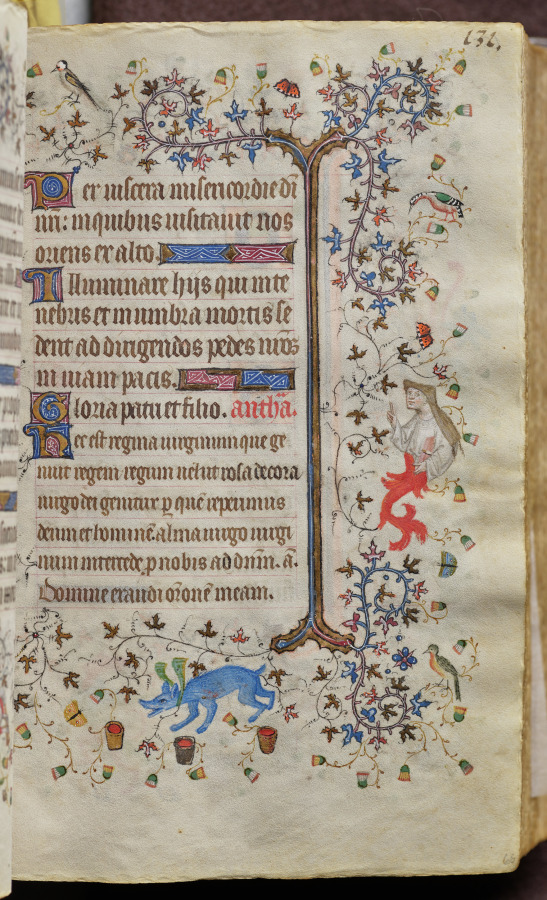 131.
Per uiscera misericordie dī
nr̄i: in quibus uisitauit nos
oriens ex alto.
Illuminare hijs qui in te
nebris et in umbra mortis se
dent ad dirigendos pedes nr̄os
in uiam pacis.
Gloria patri et filio. anth̄a.
Hec est regina uirginum que ge
nuit regem regum uelut rosa decora
uirgo dei genitrix p quē reperimus
deum et hominē alma uirgo uirgi
num intercede p nobis ad dn̄m. a.
Domine exaudi or̄onē meam.